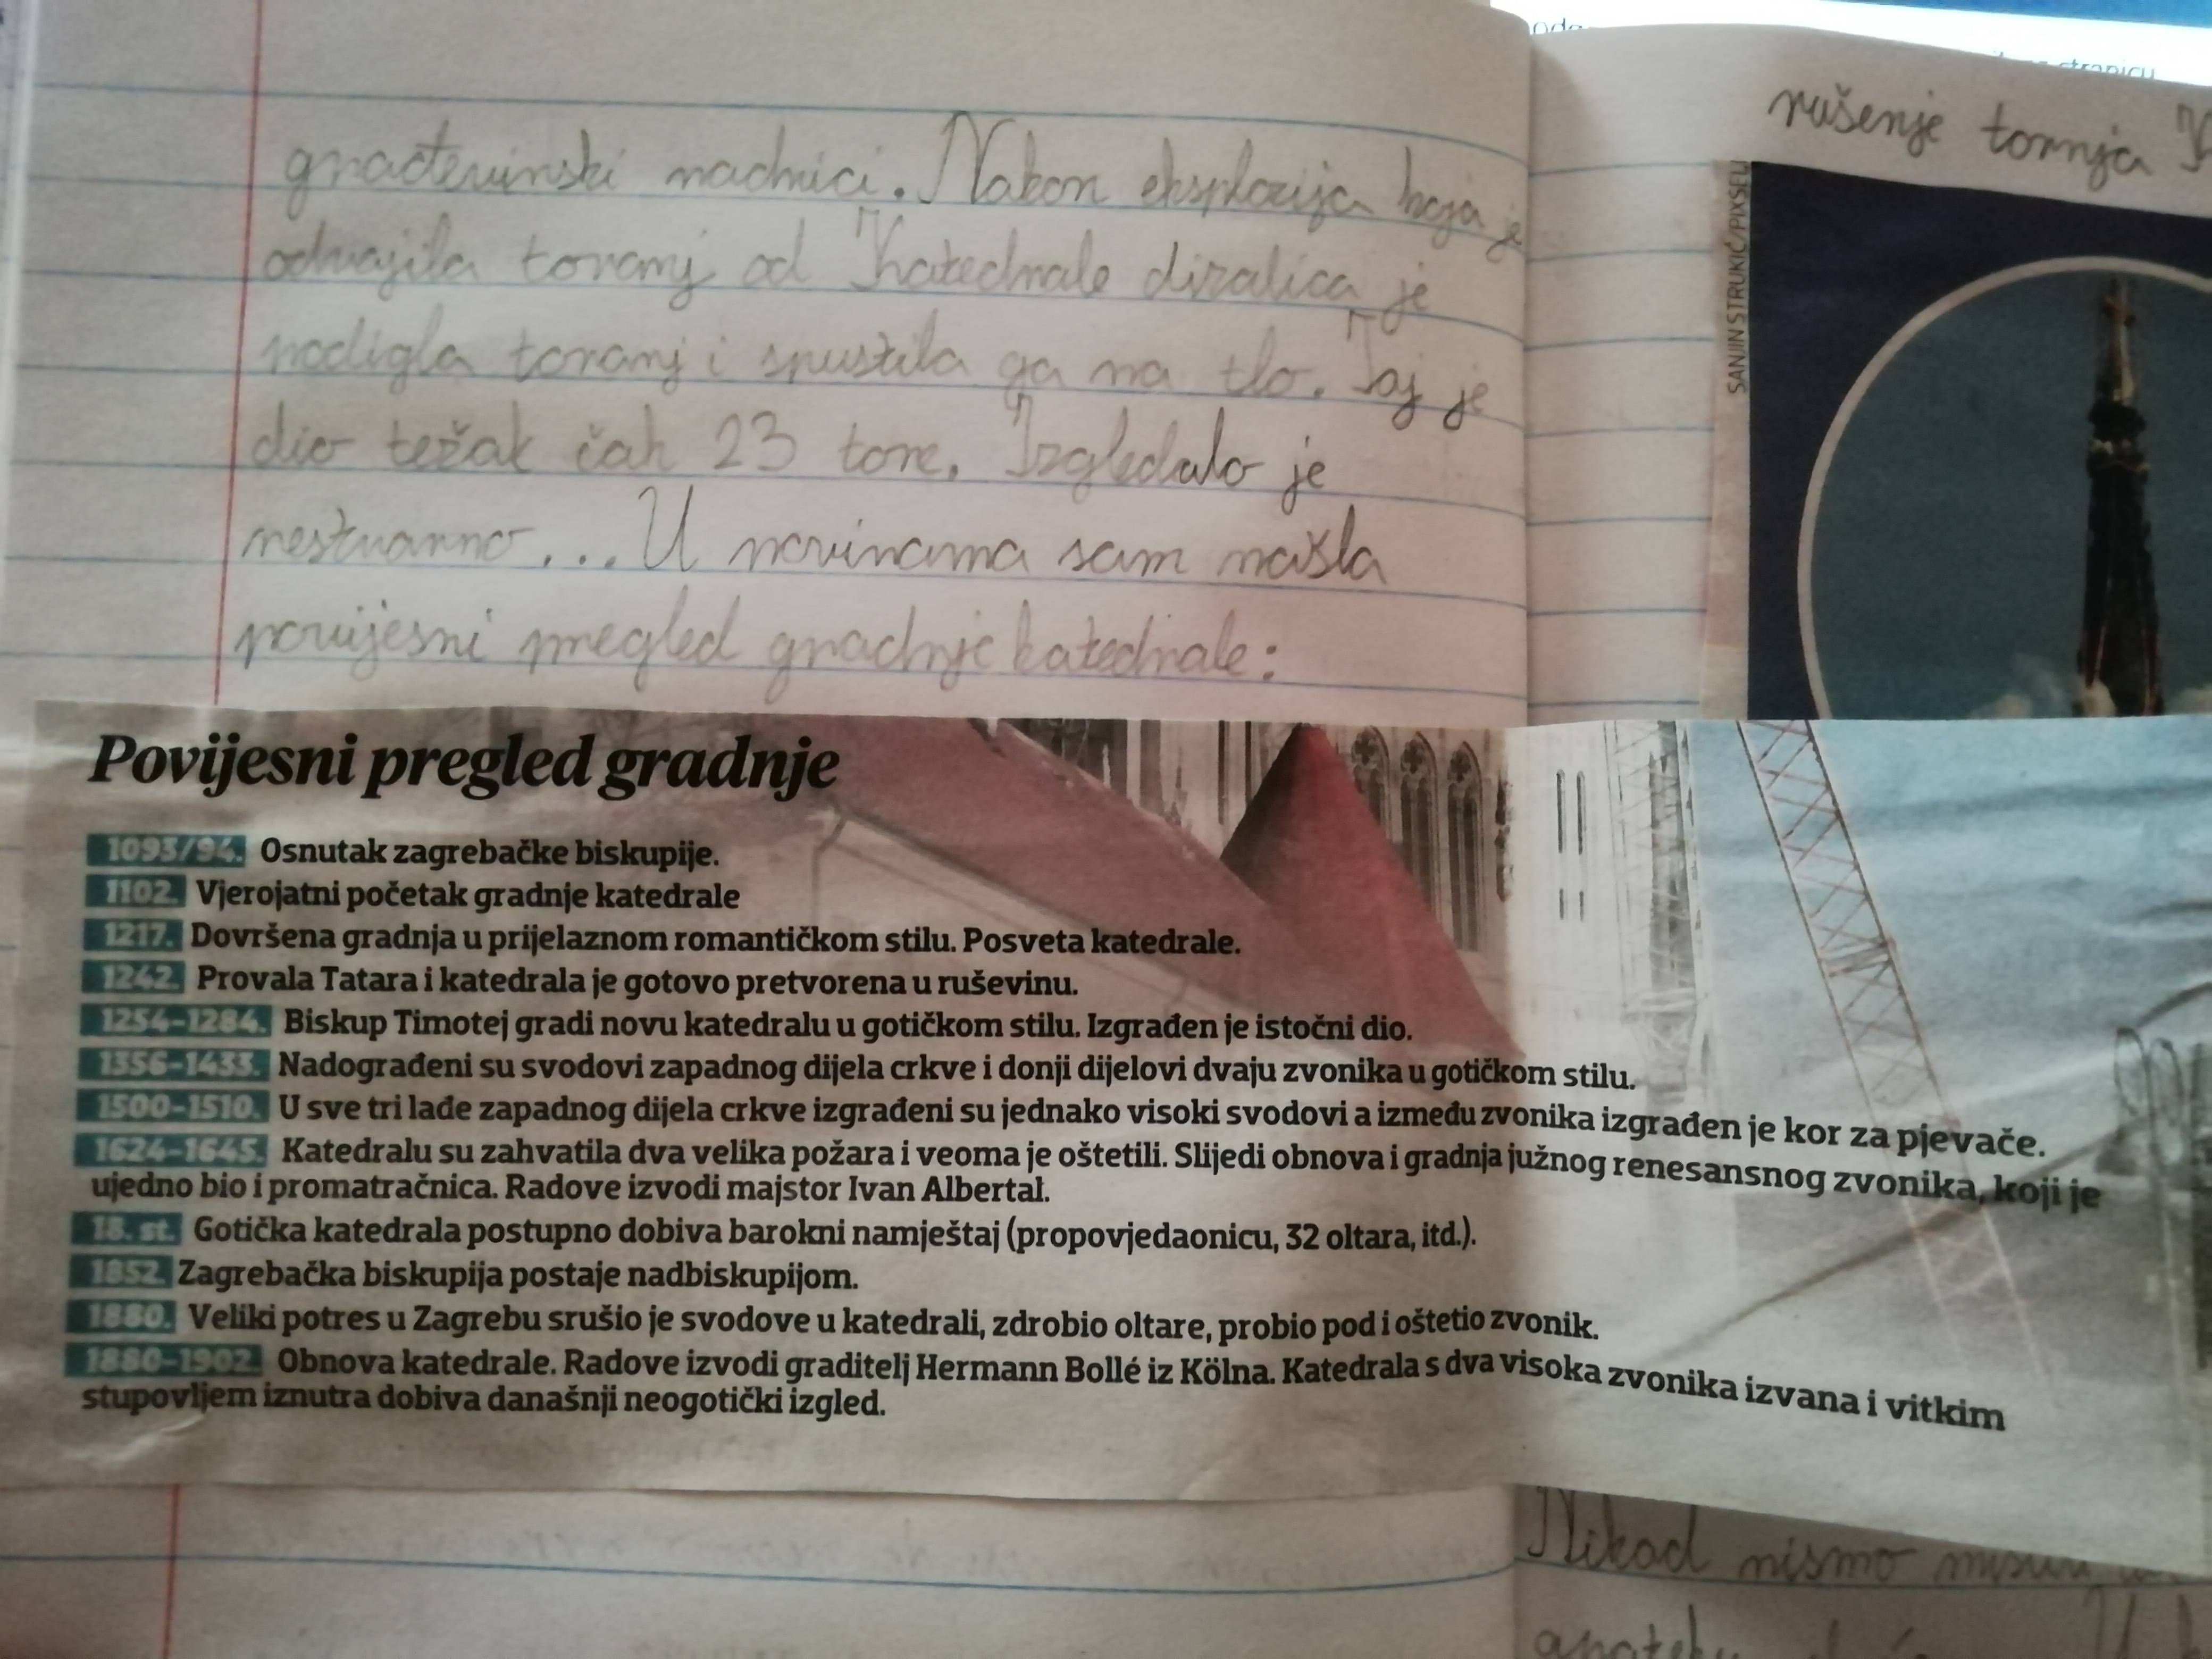 građevinski radnici. Nakon eksplozija koja je
odvojila toranj od Katedrale dizalica je
podigla toranj i spustila ga na tlo. Taj je
dio težak čak 23 tone. Izgledalo je
nestvarno... U novinama sam našla
povijesni pregled gradnje katedrale:
Povijesni pregled gradnje
1093/94. Osnutak zagrebačke biskupije.
1102. Vjerojatni početak gradnje katedrale
1217. Dovršena gradnja u prijelaznom romantičkom stilu. Posveta katedrale.
1242. Provala Tatara i katedrala je gotovo pretvorena u ruševinu.
1254-1284. Biskup Timotej gradi novu katedralu u gotičkom stilu. Izgrađen je istočni dio.
1356-1433. Nadograđeni su svodovi zapadnog dijela crkve i donji dijelovi dvaju zvonika u gotičkom stilu.
1500-1510. U sve tri lađe zapadnog dijela crkve izgrađeni su jednako visoki svodovi a između zvonika izgrađen je kor za pjevače.
1624-1645. Katedralu su zahvatila dva velika požara i veoma je oštetili. Slijedi obnova i gradnja južnog renesansnog zvonika, koji je
ujedno bio i promatračnica. Radove izvodi majstor Ivan Albertal.
18. st. Gotička katedrala postupno dobiva barokni namještaj (propovjedaonicu, 32 oltara, itd.).
1852. Zagrebačka biskupija postaje nadbiskupijom.
1880. Veliki potres u Zagrebu srušio je svodove u katedrali, zdrobio oltare, probio pod i oštetio zvonik.
1880-1902. Obnova katedrale. Radove izvodi graditelj Hermann Bollé iz Kölna. Katedrala s dva visoka zvonika izvana i vitkim
stupovljem iznutra dobiva današnji neogotički izgled.
rušenje tornja
SANJIN STRUKIĆ/PIXSELL
Nikad nismo